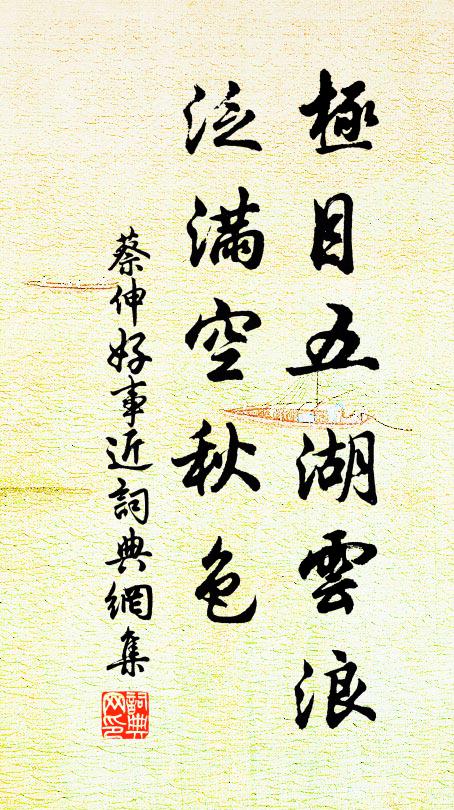 極目五湖雲浪
泛滿空秋色
蔡伸好事近詞典網集
詞典网印